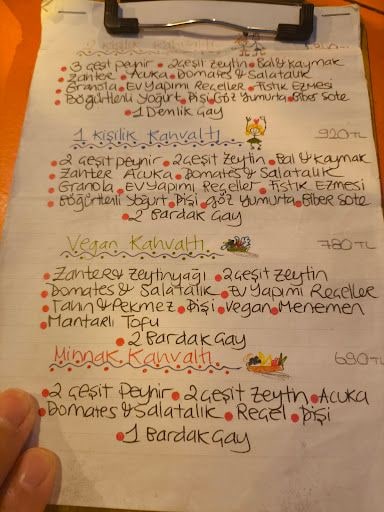 2 Kişilik Kahvaltı
3 Çeşit peynir • 2 Çeşit zeytin • Bal & Kaymak
• Zahter • Acuka • Domates & Salatalık
• Granola • Ev Yapımı Reçeller • Fıstık Ezmesi
• Böğürtlenli Yoğurt • Pişi • Göz Yumurta • Biber Sote
• 1 Demlik Çay
1 Kişilik Kahvaltı 920TL
• 2 Çeşit peynir • 2 Çeşit Zeytin • Bal & Kaymak
• Zahter • Acuka • Domates & Salatalık
• Granola • Ev Yapımı Reçeller • Fıstık Ezmesi
• Böğürtlenli Yoğurt • Pişi • Göz Yumurta • Biber Sote
• 2 Bardak Çay
Vegan Kahvaltı 780TL
• Zahter & Zeytinyağı • 2 Çeşit Zeytin
• Domates & Salatalık • Ev Yapımı Reçeller
• Tahin & Pekmez • Pişi • Vegan Menemen
• Mantarlı Tofu
• 2 Bardak Çay
Minnak Kahvaltı 680TL
• 2 Çeşit Peynir • 2 Çeşit Zeytin • Acuka
• Domates & Salatalık • Reçel • Pişi
• 1 Bardak Çay